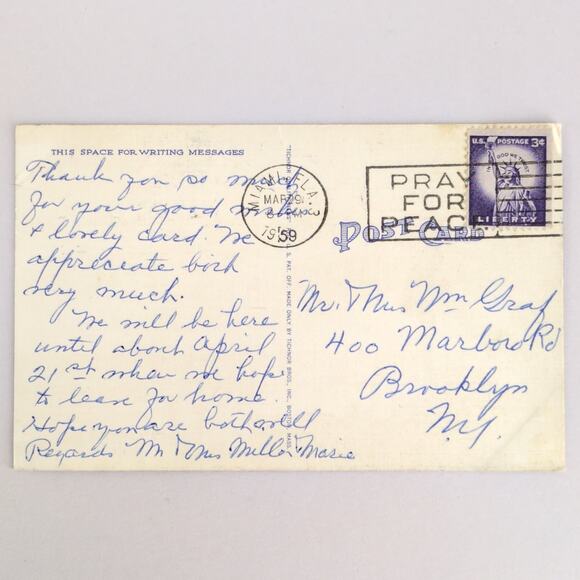 THIS SPACE FOR WRITING MESSAGES
Thank you so much
for your good wishes
& lovely card. We
appreciate both
very much.
We will be here
until about April
21st when we hope
to leave for home.
Hope you are both well
Regards Mr & Mrs Miller
TICHNOR BROS., INC., BOSTON, MASS.
PAT. OFF. MADE ONLY BY
MIAMI, FLA.
MAR 29
1959
PRAY
FOR
PEACE
U.S. POSTAGE 3¢
IN GOD WE TRUST
LIBERTY
POST CARD
Mr. & Mrs Wm Graf
400 Marboro Rd
Brooklyn
N.Y.